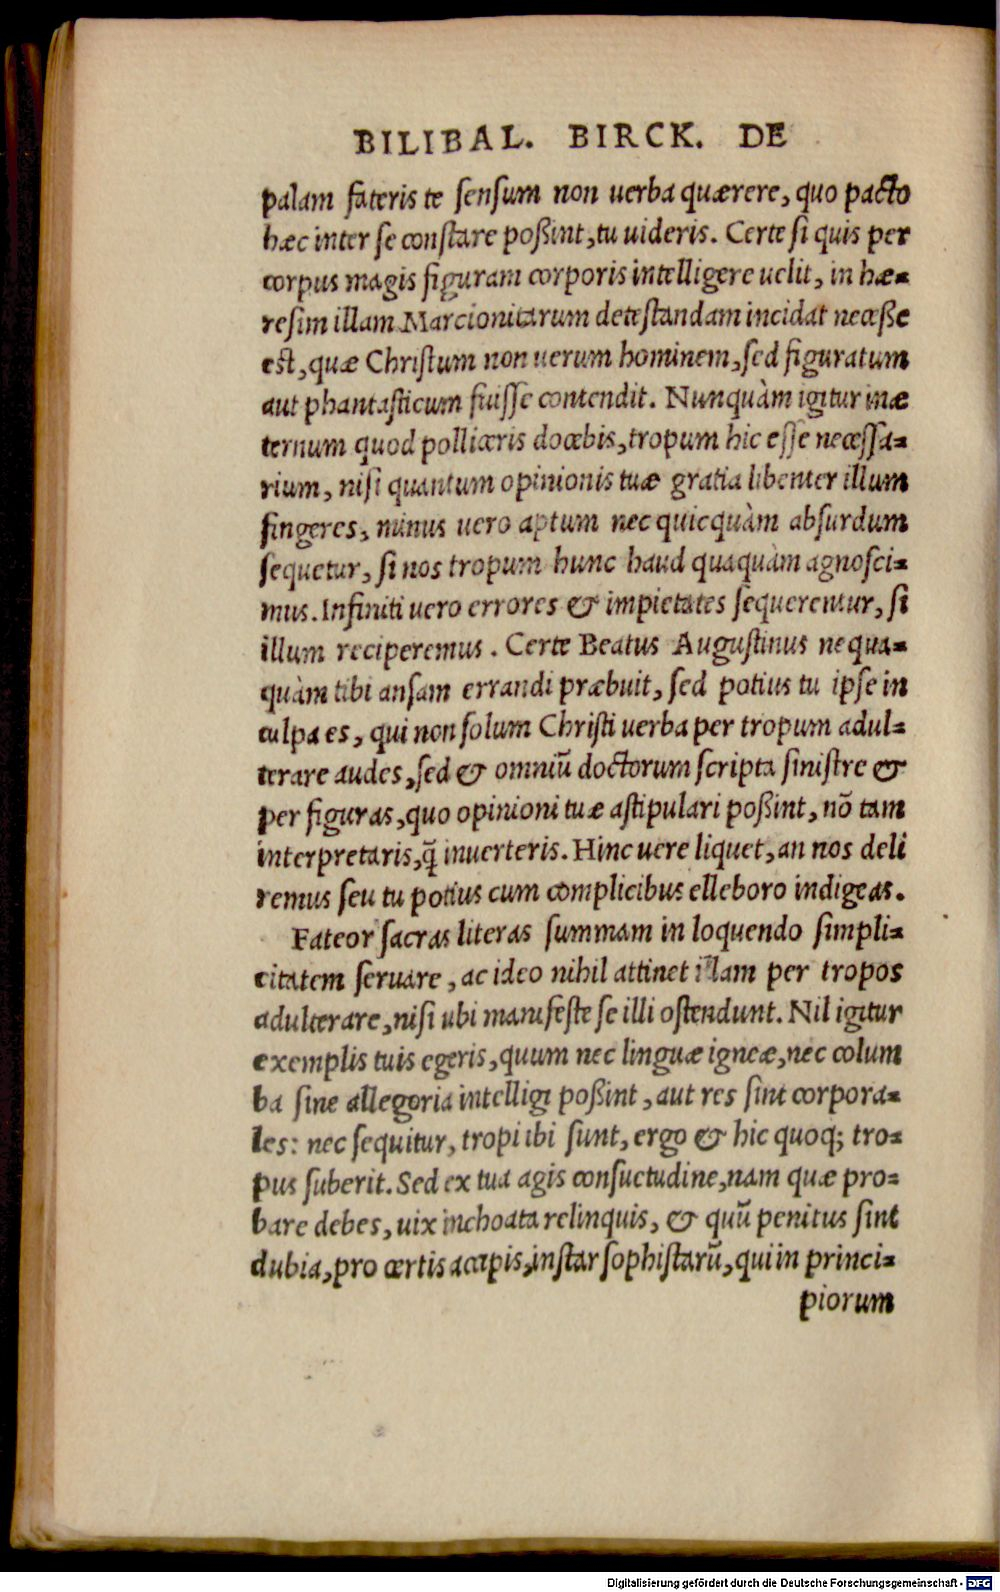 BILIBAL. BIRCK. DE
palam fateris te sensum non uerba quærere, quo pacto
hæc inter se constare poßint, tu uideris. Certe si quis per
corpus magis figuram corporis intelligere uelit, in hæ=
resim illam Marcionitarum detestandam incidat neceße
est, quæ Christum non uerum hominem, sed figuratum
aut phantasticum fuisse contendit. Nunquàm igitur inæ
ternum quod polliceris docebis, tropum hic esse necessa=
rium, nisi quantum opinionis tuæ gratia libenter illum
fingeres, minus uero aptum nec quicquàm absurdum
sequetur, si nos tropum hunc haud quaquàm agnosci=
mus. Infiniti uero errores & impietates sequerentur, si
illum reciperemus. Certe Beatus Augustinus nequa=
quàm tibi ansam errandi præbuit, sed potius tu ipse in
culpa es, qui non solum Christi uerba per tropum adul=
terare audes, sed & omniū doctorum scripta sinistre &
per figuras, quo opinioni tuæ astipulari poßint, nō tam
interpretaris, q̄ inuerteris. Hinc uere liquet, an nos deli
remus seu tu potius cum complicibus elleboro indigeas.
Fateor sacras literas summam in loquendo simpli=
citatem seruare, ac ideo nihil attinet illam per tropos
adulterare, nisi ubi manifeste se illi ostendunt. Nil igitur
exemplis tuis egeris, quum nec linguæ igneæ, nec colum
ba sine allegoria intelligi poßint, aut res sint corpora=
les: nec sequitur, tropi ibi sunt, ergo & hic quoq; tro=
pus suberit. Sed ex tua agis consuetudine, nam quæ pro=
bare debes, uix inchoata relinquis, & quū penitus sint
dubia, pro certis accipis, instar sophistarū, qui in princi=
piorum
Digitalisierung gefördert durch die Deutsche Forschungsgemeinschaft - DFG